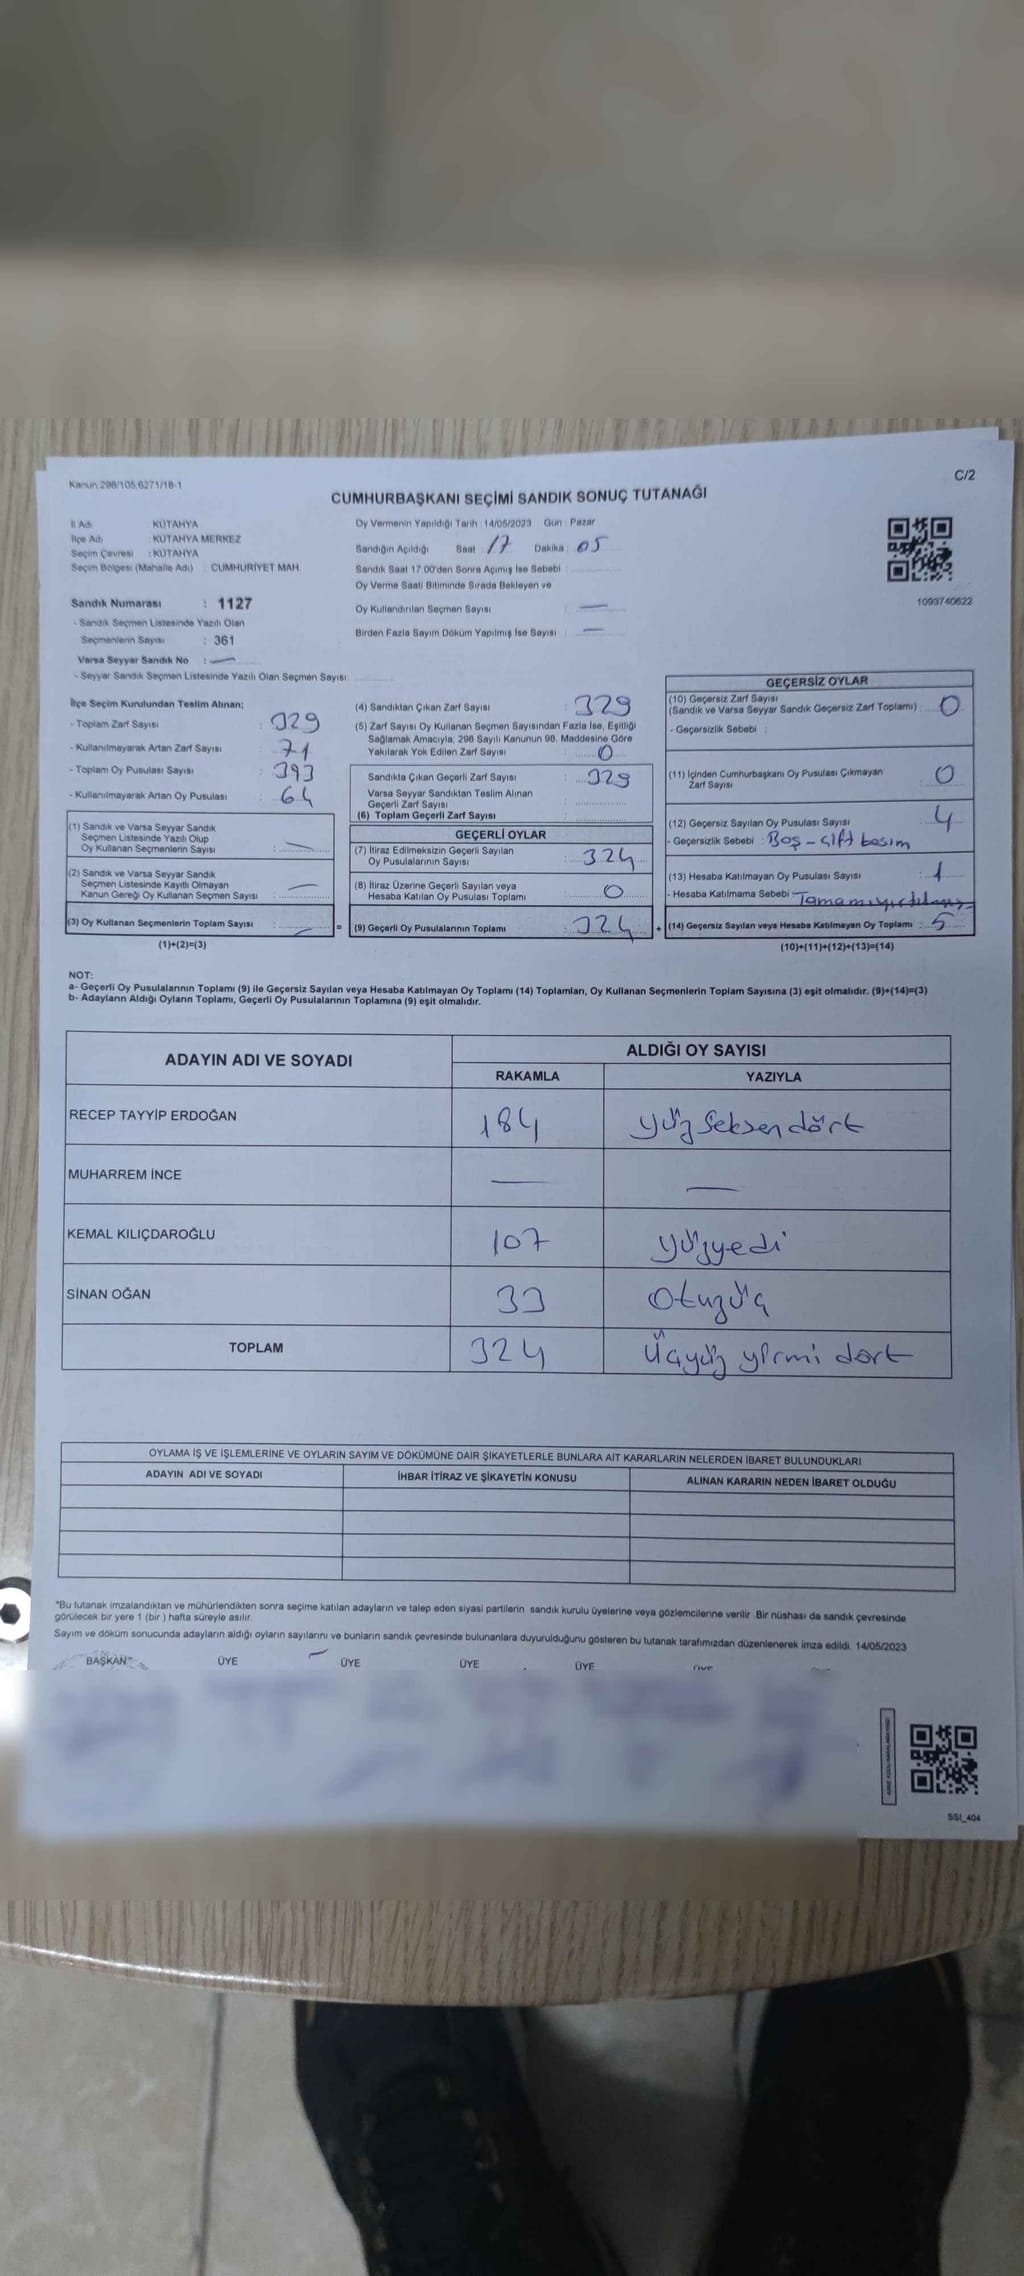 Kanun.298/105,6271/18-1
C/2
CUMHURBAŞKANI SEÇİMİ SANDIK SONUÇ TUTANAĞI
İl Adı KÜTAHYA
İlçe Adı : KÜTAHYA MERKEZ
Seçim Çevresi : KÜTAHYA
Seçim Bölgesi (Mahalle Adı) : CUMHURİYET MAH.
Sandık Numarası : 1127
- Sandık Seçmen Listesinde Yazılı Olan
Seçmenlerin Sayısı : 361
Varsa Seyyar Sandık No : —
- Seyyar Sandık Seçmen Listesinde Yazılı Olan Seçmen Sayısı
Oy Vermenin Yapıldığı Tarih : 14/05/2023 Gün : Pazar
Sandığın Açıldığı Saat : 17 Dakika : 05
Sandık Saat 17:00'den Sonra Açımış İse Sebebi :
Oy Verme Saati Bitiminde Sırada Bekleyen ve
Oy Kullandırılan Seçmen Sayısı : —
Birden Fazla Sayım Döküm Yapılmış İse Sayısı : —
1093740622
İlçe Seçim Kurulundan Teslim Alınan;
- Toplam Zarf Sayısı : 329
- Kullanılmayarak Artan Zarf Sayısı : 71
- Toplam Oy Pusulası Sayısı : 393
- Kullanılmayarak Artan Oy Pusulası : 64
(1) Sandık ve Varsa Seyyar Sandık
Seçmen Listesinde Yazılı Olup
Oy Kullanan Seçmenlerin Sayısı : —
(2) Sandık ve Varsa Seyyar Sandık
Seçmen Listesinde Kayıtlı Olmayan
Kanun Gereği Oy Kullanan Seçmen Sayısı : —
(3) Oy Kullanan Seçmenlerin Toplam Sayısı : — =
(1)+(2)=(3)
(4) Sandıktan Çıkan Zarf Sayısı : 329
(5) Zarf Sayısı Oy Kullanan Seçmen Sayısından Fazla İse, Eşitliği
Sağlamak Amacıyla, 298 Sayılı Kanunun 98. Maddesine Göre
Yakılarak Yok Edilen Zarf Sayısı : 0
Sandıkta Çıkan Geçerli Zarf Sayısı : 329
Varsa Seyyar Sandıktan Teslim Alınan
Geçerli Zarf Sayısı :
(6) Toplam Geçerli Zarf Sayısı
GEÇERLİ OYLAR
(7) İtiraz Edilmeksizin Geçerli Sayılan
Oy Pusulalarının Sayısı : 324
(8) İtiraz Üzerine Geçerli Sayılan veya
Hesaba Katılan Oy Pusulası Toplamı : 0
(9) Geçerli Oy Pusulalarının Toplamı : 324 +
GEÇERSİZ OYLAR
(10) Geçersiz Zarf Sayısı
(Sandık ve Varsa Seyyar Sandık Geçersiz Zarf Toplamı) : 0
- Geçersizlik Sebebi :
(11) İçinden Cumhurbaşkanı Oy Pusulası Çıkmayan
Zarf Sayısı : 0
(12) Geçersiz Sayılan Oy Pusulası Sayısı : 4
- Geçersizlik Sebebi : Boş - çift basım
(13) Hesaba Katılmayan Oy Pusulası Sayısı : 1
- Hesaba Katılmama Sebebi
(14) Geçersiz Sayılan veya Hesaba Katılmayan Oy Toplamı : 5
(10)+(11)+(12)+(13)=(14)
NOT:
a- Geçerli Oy Pusulalarının Toplamı (9) ile Geçersiz Sayılan veya Hesaba Katılmayan Oy Toplamı (14) Toplamları, Oy Kullanan Seçmenlerin Toplam Sayısına (3) eşit olmalıdır. (9)+(14)=(3)
b- Adayların Aldığı Oyların Toplamı, Geçerli Oy Pusulalarının Toplamına (9) eşit olmalıdır.
ADAYIN ADI VE SOYADI ALDIĞI OY SAYISI
RAKAMLA YAZIYLA
RECEP TAYYİP ERDOĞAN 184 yüz seksen dört
MUHARREM İNCE — —
KEMAL KILIÇDAROĞLU 107 yüzyedi
SİNAN OĞAN 33 Otuzüç
TOPLAM 324 Üçyüz yirmi dört
OYLAMA İŞ VE İŞLEMLERİNE VE OYLARIN SAYIM VE DÖKÜMÜNE DAİR ŞİKAYETLERLE BUNLARA AİT KARARLARIN NELERDEN İBARET BULUNDUKLARI
ADAYIN ADI VE SOYADI İHBAR İTİRAZ VE ŞİKAYETİN KONUSU ALINAN KARARIN NEDEN İBARET OLDUĞU
*Bu tutanak imzalandıktan ve mühürlendikten sonra seçime katılan adayların ve talep eden siyasi partilerin sandık kurulu üyelerine veya gözlemcilerine verilir. Bir nüshası da sandık çevresinde
görülecek bir yere 1 (bir ) hafta süreyle asılır.
Sayım ve döküm sonucunda adayların aldığı oyların sayılarını ve bunların sandık çevresinde bulunanlara duyurulduğunu gösteren bu tutanak tarafımızdan düzenlenerek imza edildi. 14/05/2023
BAŞKAN ÜYE ÜYE ÜYE ÜYE
SSI_404